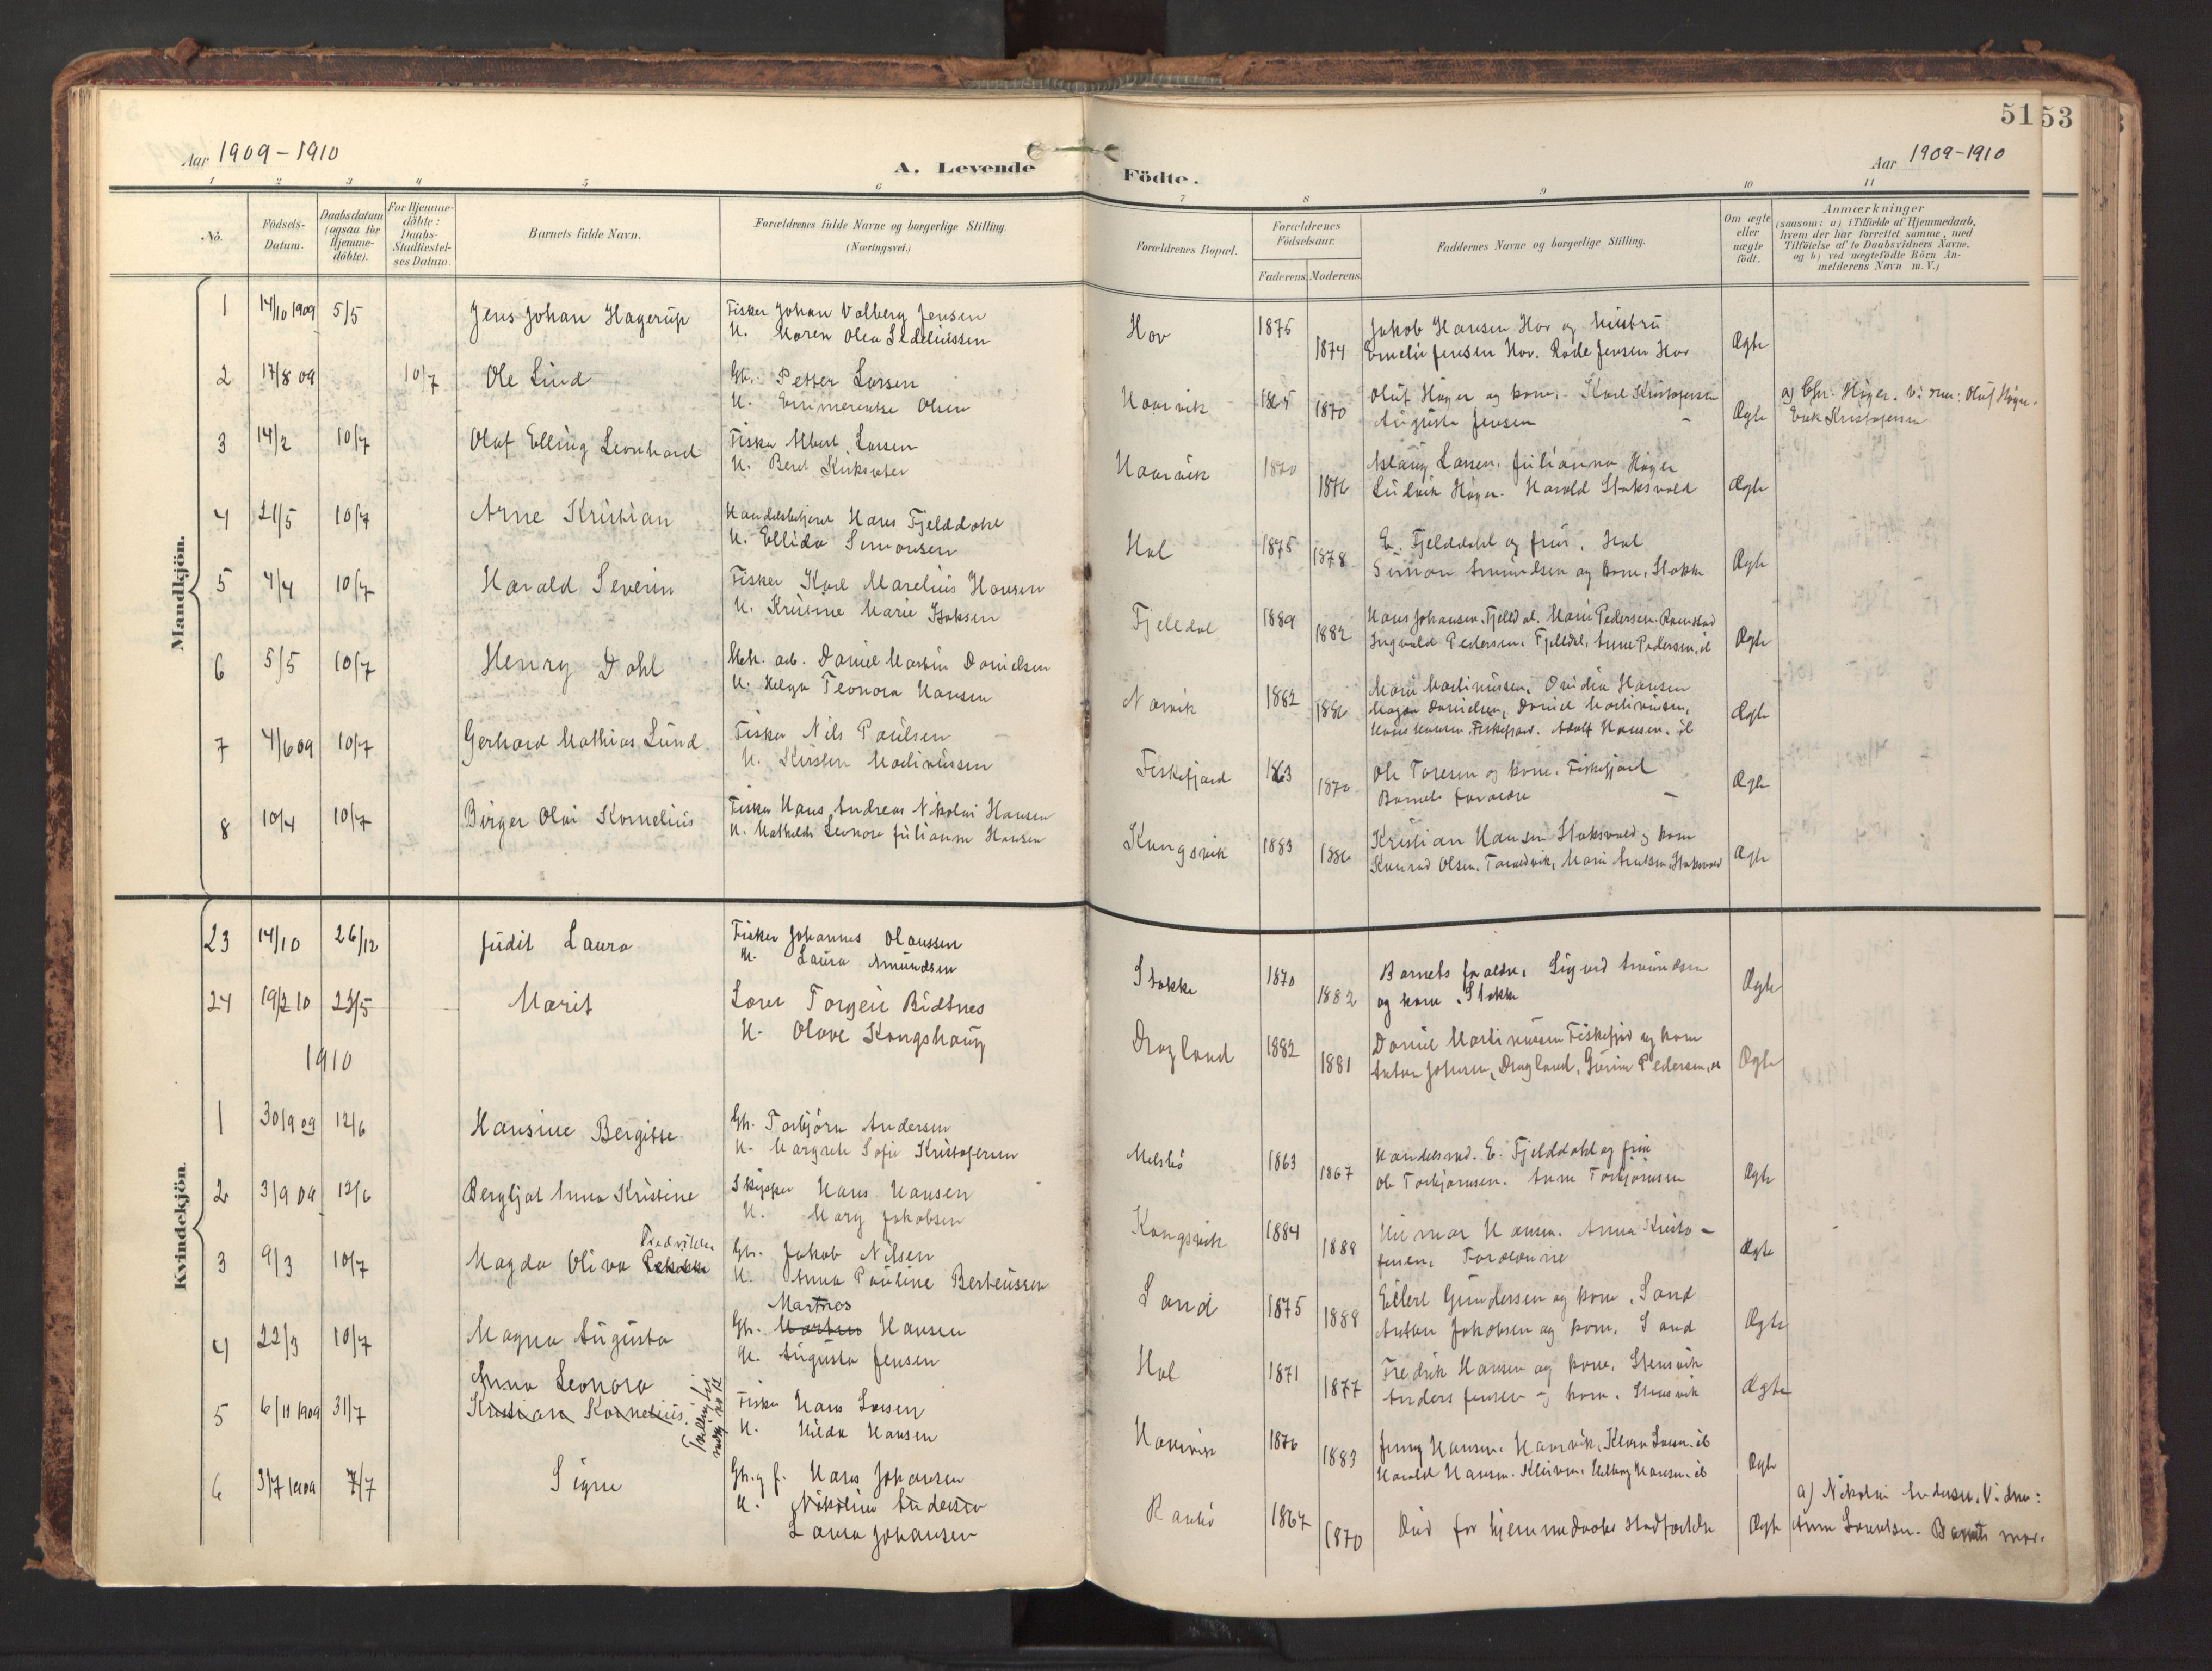 51
53
Aar 1909-1910
A. Levende
Födte.
Aar 1909-1910
1 2 3 4 5 6
7 8 9 10 11
No.
Födsels-
Datum.
Daabsdatum
(ogsaa for
Hjemme-
döbte).
For Hjemme-
döbte:
Daabs-
Stadfæstel-
ses Datum.
Barnets fulde Navn.
Forældrenes fulde Navne og borgerlige Stilling.
(Næringsvei.)
Forældrenes Bopæl.
Forældrenes
Födselsaar.
Faderens. Moderens.
Faddernes Navne og borgerlige Stilling.
Om ægte
eller
uægte
födt.
Anmærkninger
(saasom: a) i Tilfælde af Hjemmedaab,
hvem der har forrettet samme, med
Tilföielse af to Daabsvidners Navne,
og b) ved uægtefödte Börn An-
melderens Navn m. V.)
Mandkjön.
1 14/10 1909 5/5 Jens Johan Hagerup Fisker Johan Volberg Jensen
H. Maren Olea Sedeliussen
Hov 1875 1874 Jakob Hansen Hov og hustru
Emelie Jensen Hov. Jensen Hov Ægte
2 17/8 09 10/7 Ole Lind Gb. Petter Larsen
H. Olsen
1865 1870 Oluf Høyer og kone. Karl Kristofersen
Augusta Jensen Ægte
a) Chr. Høyer. Oluf Høyer.
Kristofersen
3 14/2 10/7 Olaf Elling Leonhard Fisker Albert Larsen
H. Beret
1870 1876 Aslaug Larsen. Julianna Høyer
Ludvik Høyer. Harald Staksvold Ægte
4 21/5 10/7 Arne Kristian Handelsbetjent Hans Fjelddahl
H. Ellida Simonsen
Hol 1875 1878 E. Fjelddahl og frue, Hol
Simon Amundsen og kone, Stokke Ægte
5 4/4 10/7 Harald Severin Fisker Karl Marelius Hansen
H. Kristine Marie Isaksen
Fjelldal 1889 1882 Hans Johansen, Fjelldal. Marie Pedersen. Ramstad
Ingvald Pedersen, Fjelldal, Anne Pedersen, ib Ægte
6 5/5 10/7 Henry Dahl arb. Daniel Martin Danielsen
H. Helga Leonora Hansen
Narvik 1882 1886 Marie Martinussen, Ovidia Hansen
Magna Danielsen, Daniel Martinussen,
Hans Hansen, Fiskefjord. Adolf Hansen. ib Ægte
7 4/6 09 10/7 Gerhard Mathias Lund Fisker Nils Paulsen
H. Kirsten Martinussen
Fiskefjord 1863 1870 Ole Toresen og kone. Fiskefjord
Barnets forældre Ægte
8 10/4 10/7 Birger Olai Kornelius Fisker Hans Andreas Nikolai Hansen
H. Mathilde Leonore Julianne Hansen
Kongsvik 1883 1886 Kristian Hansen Staksvold og kone
Konrad Olsen, Marie Staksvold Ægte
Kvindekjön.
23 14/10 26/12 Judit Laura Fisker Johannes Olaussen
H. Laura Amundsen
Stokke 1870 1882 Barnets forældre, Sigurd Amundsen
og kone. Stokke Ægte
24 19/2 10 23/5 Marit Lærer Torgeir Bidtnes
H. Olave Kongshaug
Dragland 1882 1881 Daniel Martinussen Fiskefjord og kone
Anton Johnsen, Dragland, Pedersen, ib Ægte
1910
1 30/9 09 12/6 Hansine Bergitte Gb. Torbjørn Andersen
H. Margrete Sofie Kristofersen
Melsbø 1863 1867 Handelsmd. E. Fjelddahl og frue
Ole Torbjørnsen. Anna Torbjørnsen Ægte
2 3/9 09 12/6 Bergljot Anna Kristine Skipper Hans Hansen
H. Mary Jakobsen
Kongsvik 1884 1888 Hilmar Hansen. Anna Kristo-
fersen, Forældrene Ægte
3 9/3 10/7 Magda Oliva Gb. Jakob Nilsen
H. Anna Pauline Berteussen
Sand 1875 1888 Eilert Gundersen og kone, Sand
Anton Jakobsen og kone. Sand Ægte
4 22/3 10/7 Magna Augusta Martnes
Gb. Morten Hansen
H. Augusta Jensen
Hol 1871 1877 Fredrik Hansen og kone, Stensvik
Anders Jensen og kone. Stensvik Ægte
Anna Leonora
5 6/11 1909 31/7 Kristian Kornelius. Fisker Hans Larsen
H. Hilda Hansen
1876 1883 Jenny Hansen. Haarvik, Klara Larsen. ib
Harald Hansen. Hansen. ib Ægte
6 3/7 1909 7/7 Signe Gb. og f. Hans Johansen
H. Nikoline Andersen
Laura Johansen
1867 1870 Død før hjemmedaaben stadfæstedes Ægte
a) Nikolai Andersen. Vidner:
Anna Barnets mor.